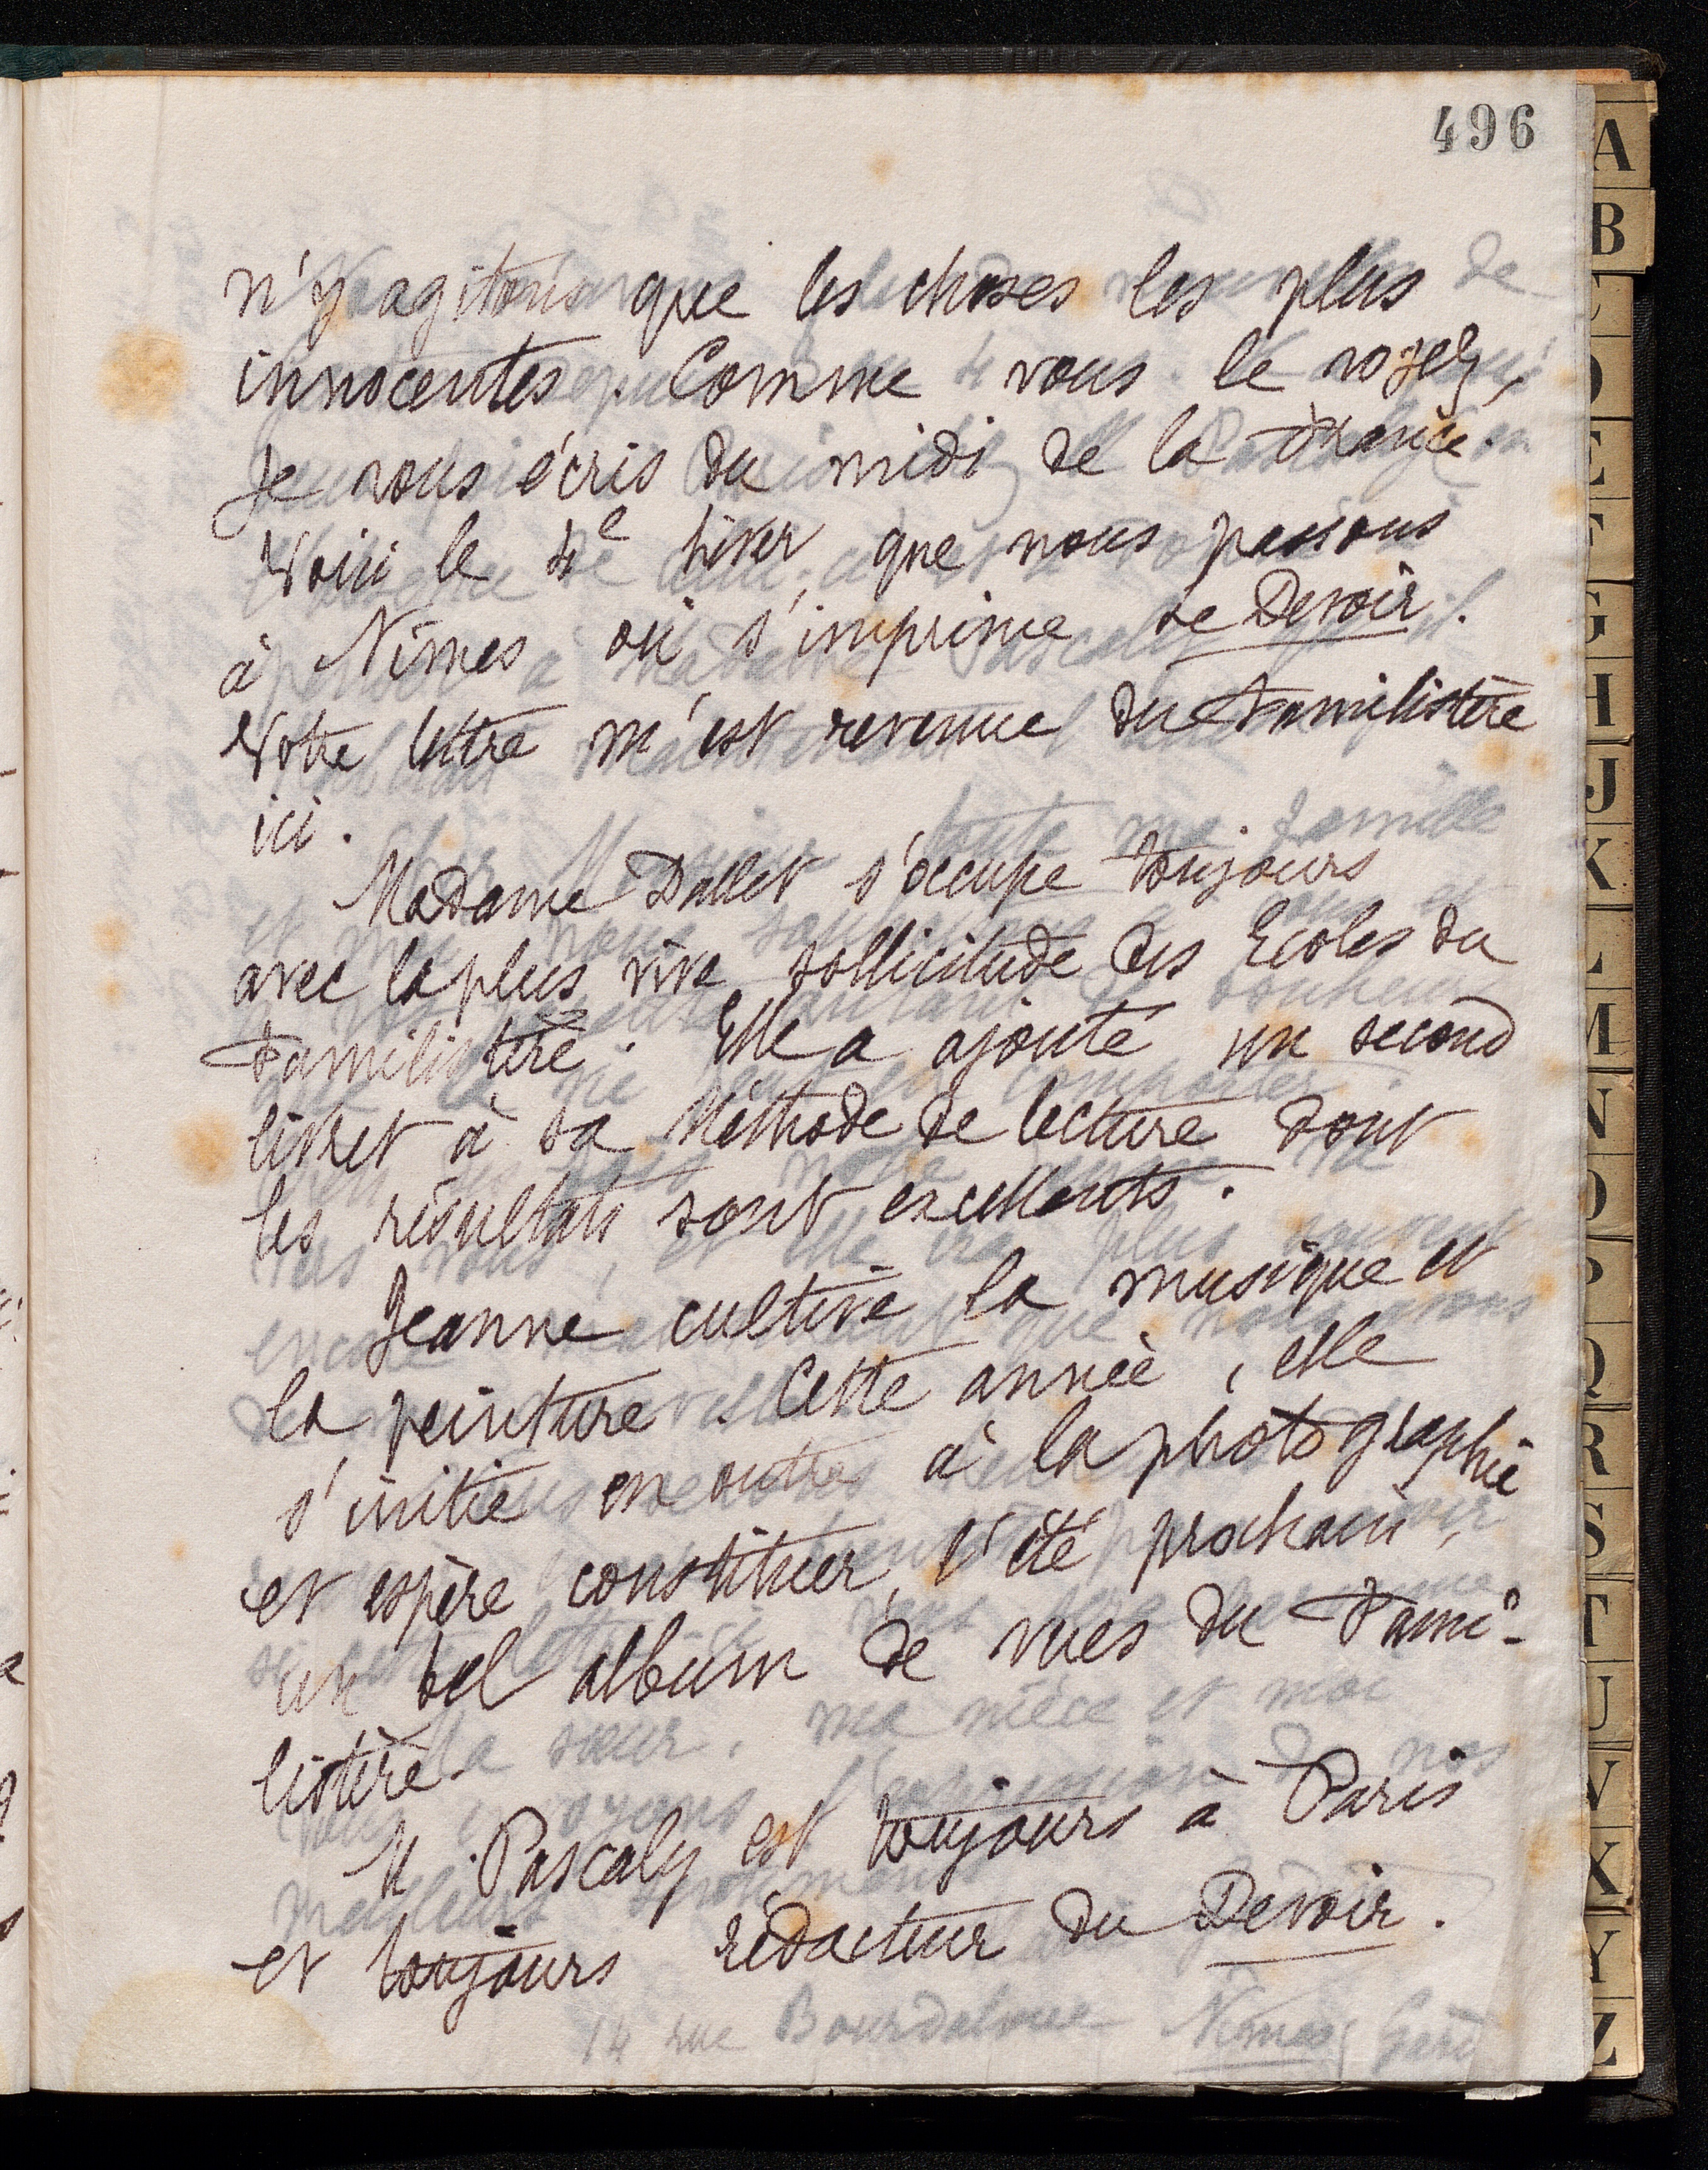 496
n'y agitons que les choses les plus
innocentes. Comme vous le voyez,
je vous écris du midi de la France.
Voici le 4e hiver que nous passons
à Nîmes où s'imprime le Devoir.
Votre lettre m'est revenue du Familistère
ici.
Madame Dallet s'occupe toujours
avec la plus vive sollicitude des Ecoles du
Familistère. Elle a ajouté un second
livret à sa Méthode de lecture dont
les résultats sont excellents.
Jeanne cultive la musique et
la peinture. Cette année, elle
s'initie en outre à la photographie
et espère constituer, l'été prochain,
un bel album de vues du Fami-
listère.
M. Pascaly est toujours à Paris
et toujours rédacteur du Devoir.
14 rue Bourdaloue Nîmes Gard
A
B
C
D
E
F
G
H
J
K
L
M
N
O
P
Q
R
S
T
U
V
X
Y
Z